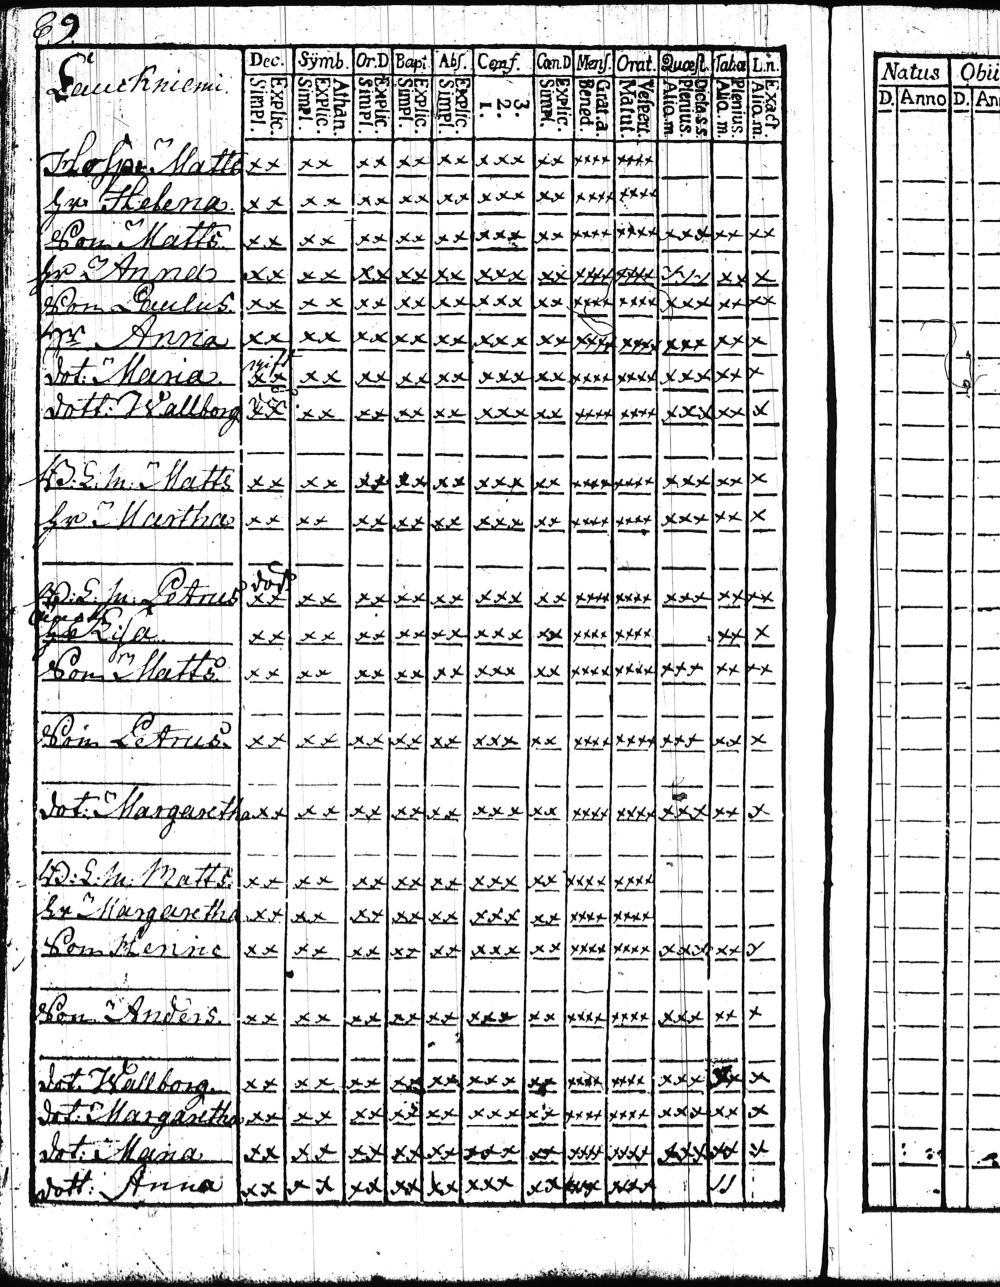 69
Dec. Symb. Or.D Bapt. Abs. Conf. Cœn.D Mens. Orat. Quæst. Tabæ L.n.
Explic. Simpl. Athan. Explic. Simpl. Explic. Simpl. Explic. Simpl. Explic. Simpl. 3. 2. 1. Explic. Simpl. Grat.a Bened. Vespert. Matut. Dicta s.s. Plenius. Aliq.m Plenius. Aliq.m Exact Aliq.m
Lauckniemi.
Matts xx xx xx xx xx xxx xx xxxx xxxx
hr Helena. xx xx xx xx xx xxx xx xxxx xxxx
Son Matts. xx xx xx xx xx xxx xx xxxx xxxx xxx xx xx
hr Anna xx xx xx xx xx xxx xx xxxx xxxx xx x
Son Paulus. xx xx xx xx xx xxx xx xxxx xxxx xxx xx xx
hr Anna xx xx xx xx xx xxx xx xxxx xxxx xxx xx x
dot: Maria. xx xx xx xx xx xxx xx xxxx xxxx xxx xx x
dott: Wallborg xx xx xx xx xx xxx xx xxxx xxxx xxx xx x
B: L: m: Matts xx xx xx xx xx xxx xx xxxx xxxx xxx xx x
hr Martha xx xx xx xx xx xxx xx xxxx xxxx xxx xx x
död
B: L: m: Petrus xx xx xx xx xx xxx xx xxxx xxxx xxx xx xx
hr Lisa. xx xx xx xx xx xxx xx xxxx xxxx xx x
Son Matts. xx xx xx xx xx xxx xx xxxx xxxx xxx xx xx
Son Petrus. xx xx xx xx xx xxx xx xxxx xxxx xxx xx x
dot: Margaretha xx xx xx xx xx xxx xx xxxx xxxx xxx xx x
B: L: m: Matts. xx xx xx xx xx xxx xx xxxx xxxx
hr Margaretha xx xx xx xx xx xxx xx xxxx xxxx
Son Henric xx xx xx xx xx xxx xx xxxx xxxx xxx xx x
Son Anders. xx xx xx xx xx xxx xx xxxx xxxx xxx xx x
dot. Wallborg. xx xx xx xx xx xxx xx xxxx xxxx xxx xx x
dot: Margaretha xx xx xx xx xx xxx xx xxxx xxxx xxx xx x
dot: Maria xx xx xx xx xx xxx xx xxxx xxxx xxx xx x
dott: Anna xx xx xx xx xx xxx xx xxx xxxx
Natus Obii
D. Anno D. An